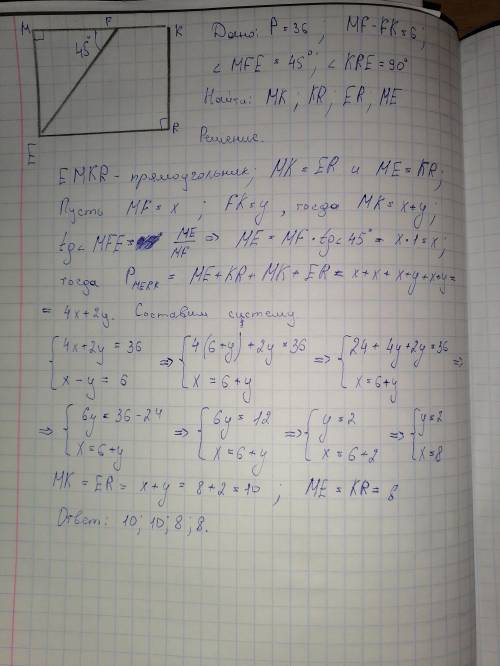 M F K
45°
E R
Дано: P = 36 ; MF - FK = 6 ;
∠ MFE = 45° ; ∠ KRE = 90°
Найти: MK ; KR ; ER ; ME
Решение.
EMKR - прямоугольник; MK = ER и ME = KR ;
Пусть MF = x ; FK = y , тогда MK = x+y ;
tg∠ MFE = ME/MF ⇒ ME = MF · tg∠45° = x · 1 = x ;
тогда P MERK = ME + KR + MK + ER = x + x + x+y + x+y =
= 4x + 2y. Составим систему
{ 4x + 2y = 36 ⇒ { 4(6+y) + 2y = 36 ⇒ { 24 + 4y + 2y = 36 ⇒
x - y = 6 x = 6 + y x = 6 + y
⇒ { 6y = 36 - 24 ⇒ { 6y = 12 ⇒ { y = 2 ⇒ { y = 2
x = 6 + y x = 6 + y x = 6 + 2 x = 8
MK = ER = x + y = 8 + 2 = 10 ; ME = KR = 8
Ответ: 10; 10; 8; 8.